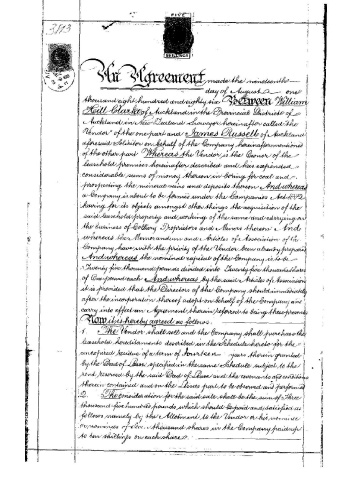 3/13
FIVE
SHILLINGS
An Agreement made the nineteenth
day of August one
thousand eight hundred and eighty six Between William
Hill Clarke of Auckland in the Provincial District of
Auckland in New Zealand Surveyor hereinafter called the
Vendor of the one part and James Russell of Auckland
aforesaid Solicitor on behalf of the Company hereinafter mentioned
of the other part Whereas the Vendor is the Owner of the
leasehold premises hereinafter described and has expended
considerable sums of money thereon in boring for coal and
prospecting the mineral veins and deposits thereon And whereas
a Company is about to be formed under the Companies Act 1882
having for its objects amongst other things the acquisition of the
said leasehold property and working of the same and carrying on
the business of Colliery Proprietors and Miners thereon And
whereas the Memorandum and Articles of Association of the
Company have with the privity of the Vendor been already prepared
And whereas the nominal capital of the Company is to be
Twenty five thousand pounds divided into Twenty five thousand shares
of One pound each And whereas by the said Articles of Association
it is provided that the Directors of the Company shall immediately
after the incorporation thereof adopt on behalf of the Company and
carry into effect an Agreement therein referred to being these presents
Now it is hereby agreed as follows
The Vendor shall sell and the Company shall purchase the
leasehold hereditaments described in the Schedule hereto for the
unexpired residue of a term of fourteen years therein granted
by the Deed of Lease specified in the same Schedule subject to the
rent reserved by the said Deed of Lease and the covenants and conditions
therein contained and on the Lessees part to be observed and performed
2. The consideration for the said sale shall be the sum of Three
thousand five hundred pounds which should be paid and satisfied as
follows namely by the Allotment to the Vendor or his nominee
or nominees of thousand shares in the Company paid up
to ten shillings on each share